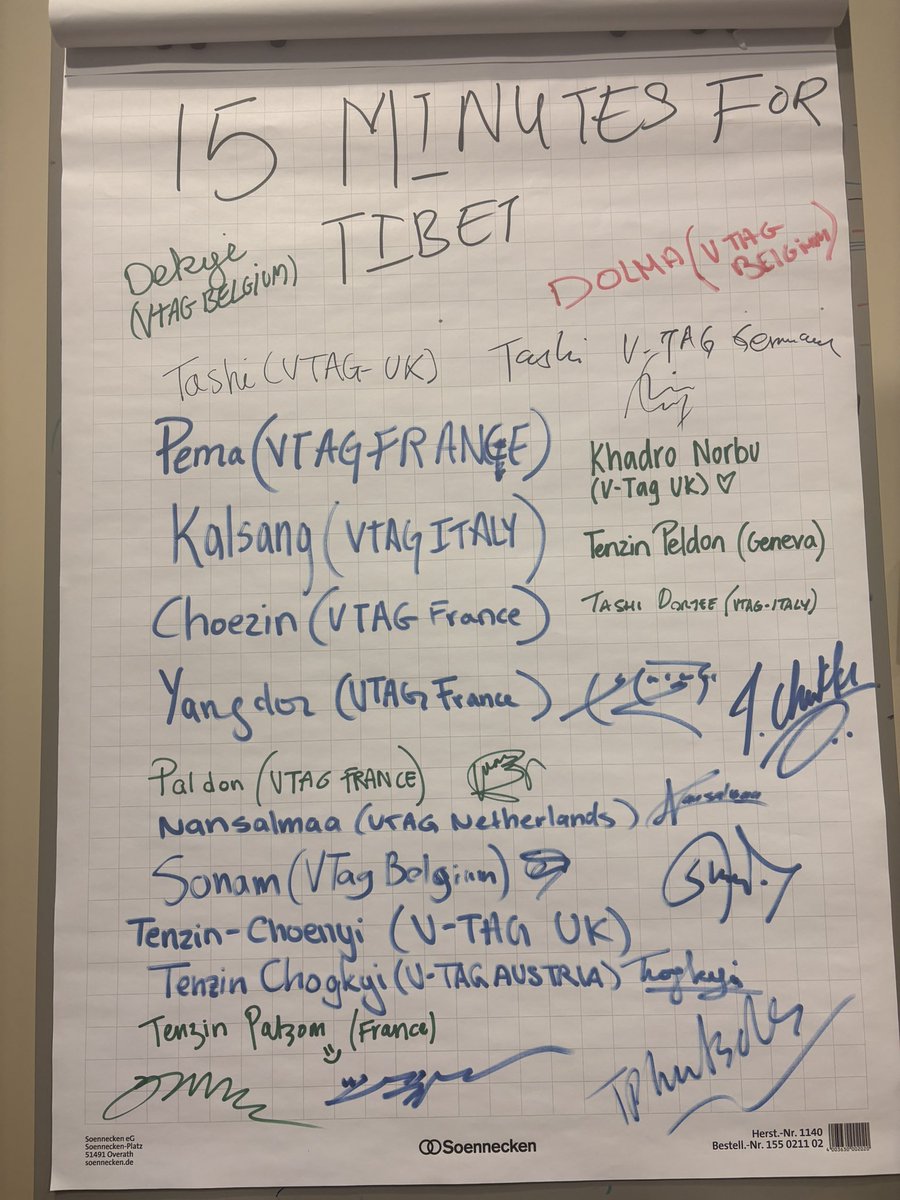 15 MINUTES FOR
TIBET
Dekyi
(VTAG BELGIUM)
DOLMA (VTAG
BELGIUM)
Tashi (VTAG-UK)
Tashi V-TAG Germany
Pema (VTAG FRANCE)
Khadro Norbu
(V-Tag UK) ♡
Kalsang (VTAG ITALY)
Tenzin Peldon (Geneva)
Choezin (VTAG France)
TASHI DORJEE (VTAG-ITALY)
Yangdoz (VTAG France)
Paldon (VTAG FRANCE)
Nansalmaa (VTAG Netherlands) Nansalmaa
Sonam (VTag Belgium)
Tenzin-Choenyi (V-TAG UK)
Tenzin Chogkyi (V-TAG AUSTRIA) Chogkyi
Tenzin Patzom (France)
Soennecken eG
Soennecken-Platz
51491 Overath
soennecken.de
Soennecken
Herst.-Nr. 1140
Bestell.-Nr. 155 0211 02
4 003630 002020